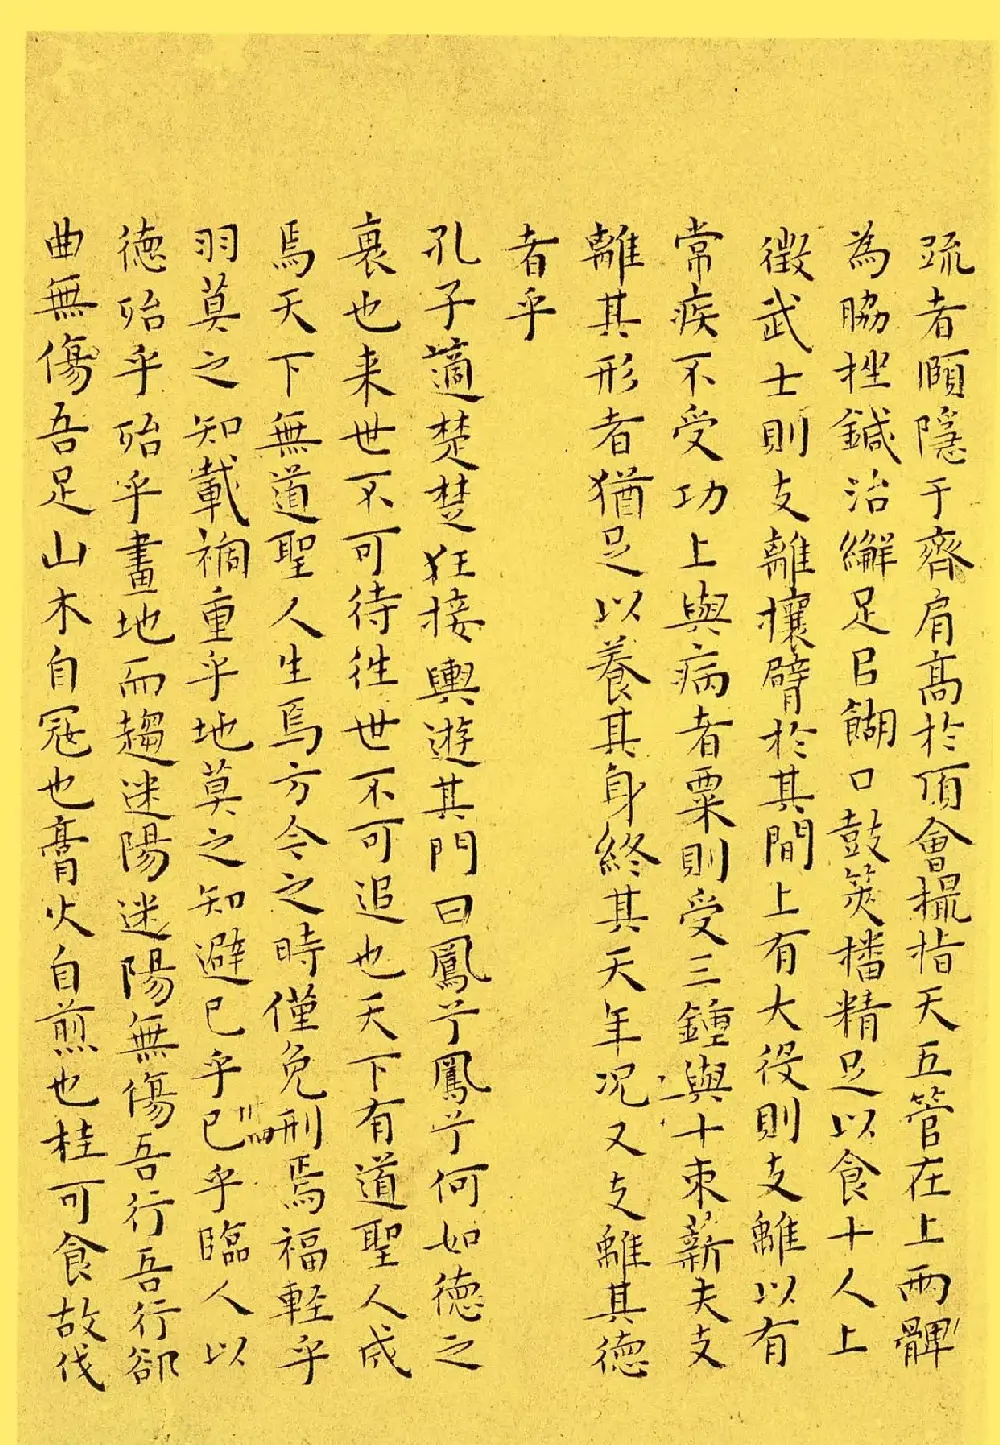 疏者頤隱于齊肩高於頂會撮指天五管在上兩髀
為脇挫鍼治繲足㠯餬口鼓筴播精足以食十人上
徵武士則支離攘臂於其間上有大役則支離以有
常疾不受功上與病者粟則受三鍾與十束薪夫支
離其形者猶足以養其身終其天年况又支離其德
者乎
孔子適楚楚狂接輿遊其門曰鳳兮鳳兮何如德之
衰也来世不可待往世不可追也天下有道聖人成
焉天下無道聖人生焉方今之時僅免刑焉福輕乎
羽莫之知載禍重乎地莫之知避已乎已乎臨人以
德殆乎殆乎畫地而趨迷陽迷陽無傷吾行吾行郤
曲無傷吾足山木自寇也膏火自煎也桂可食故伐